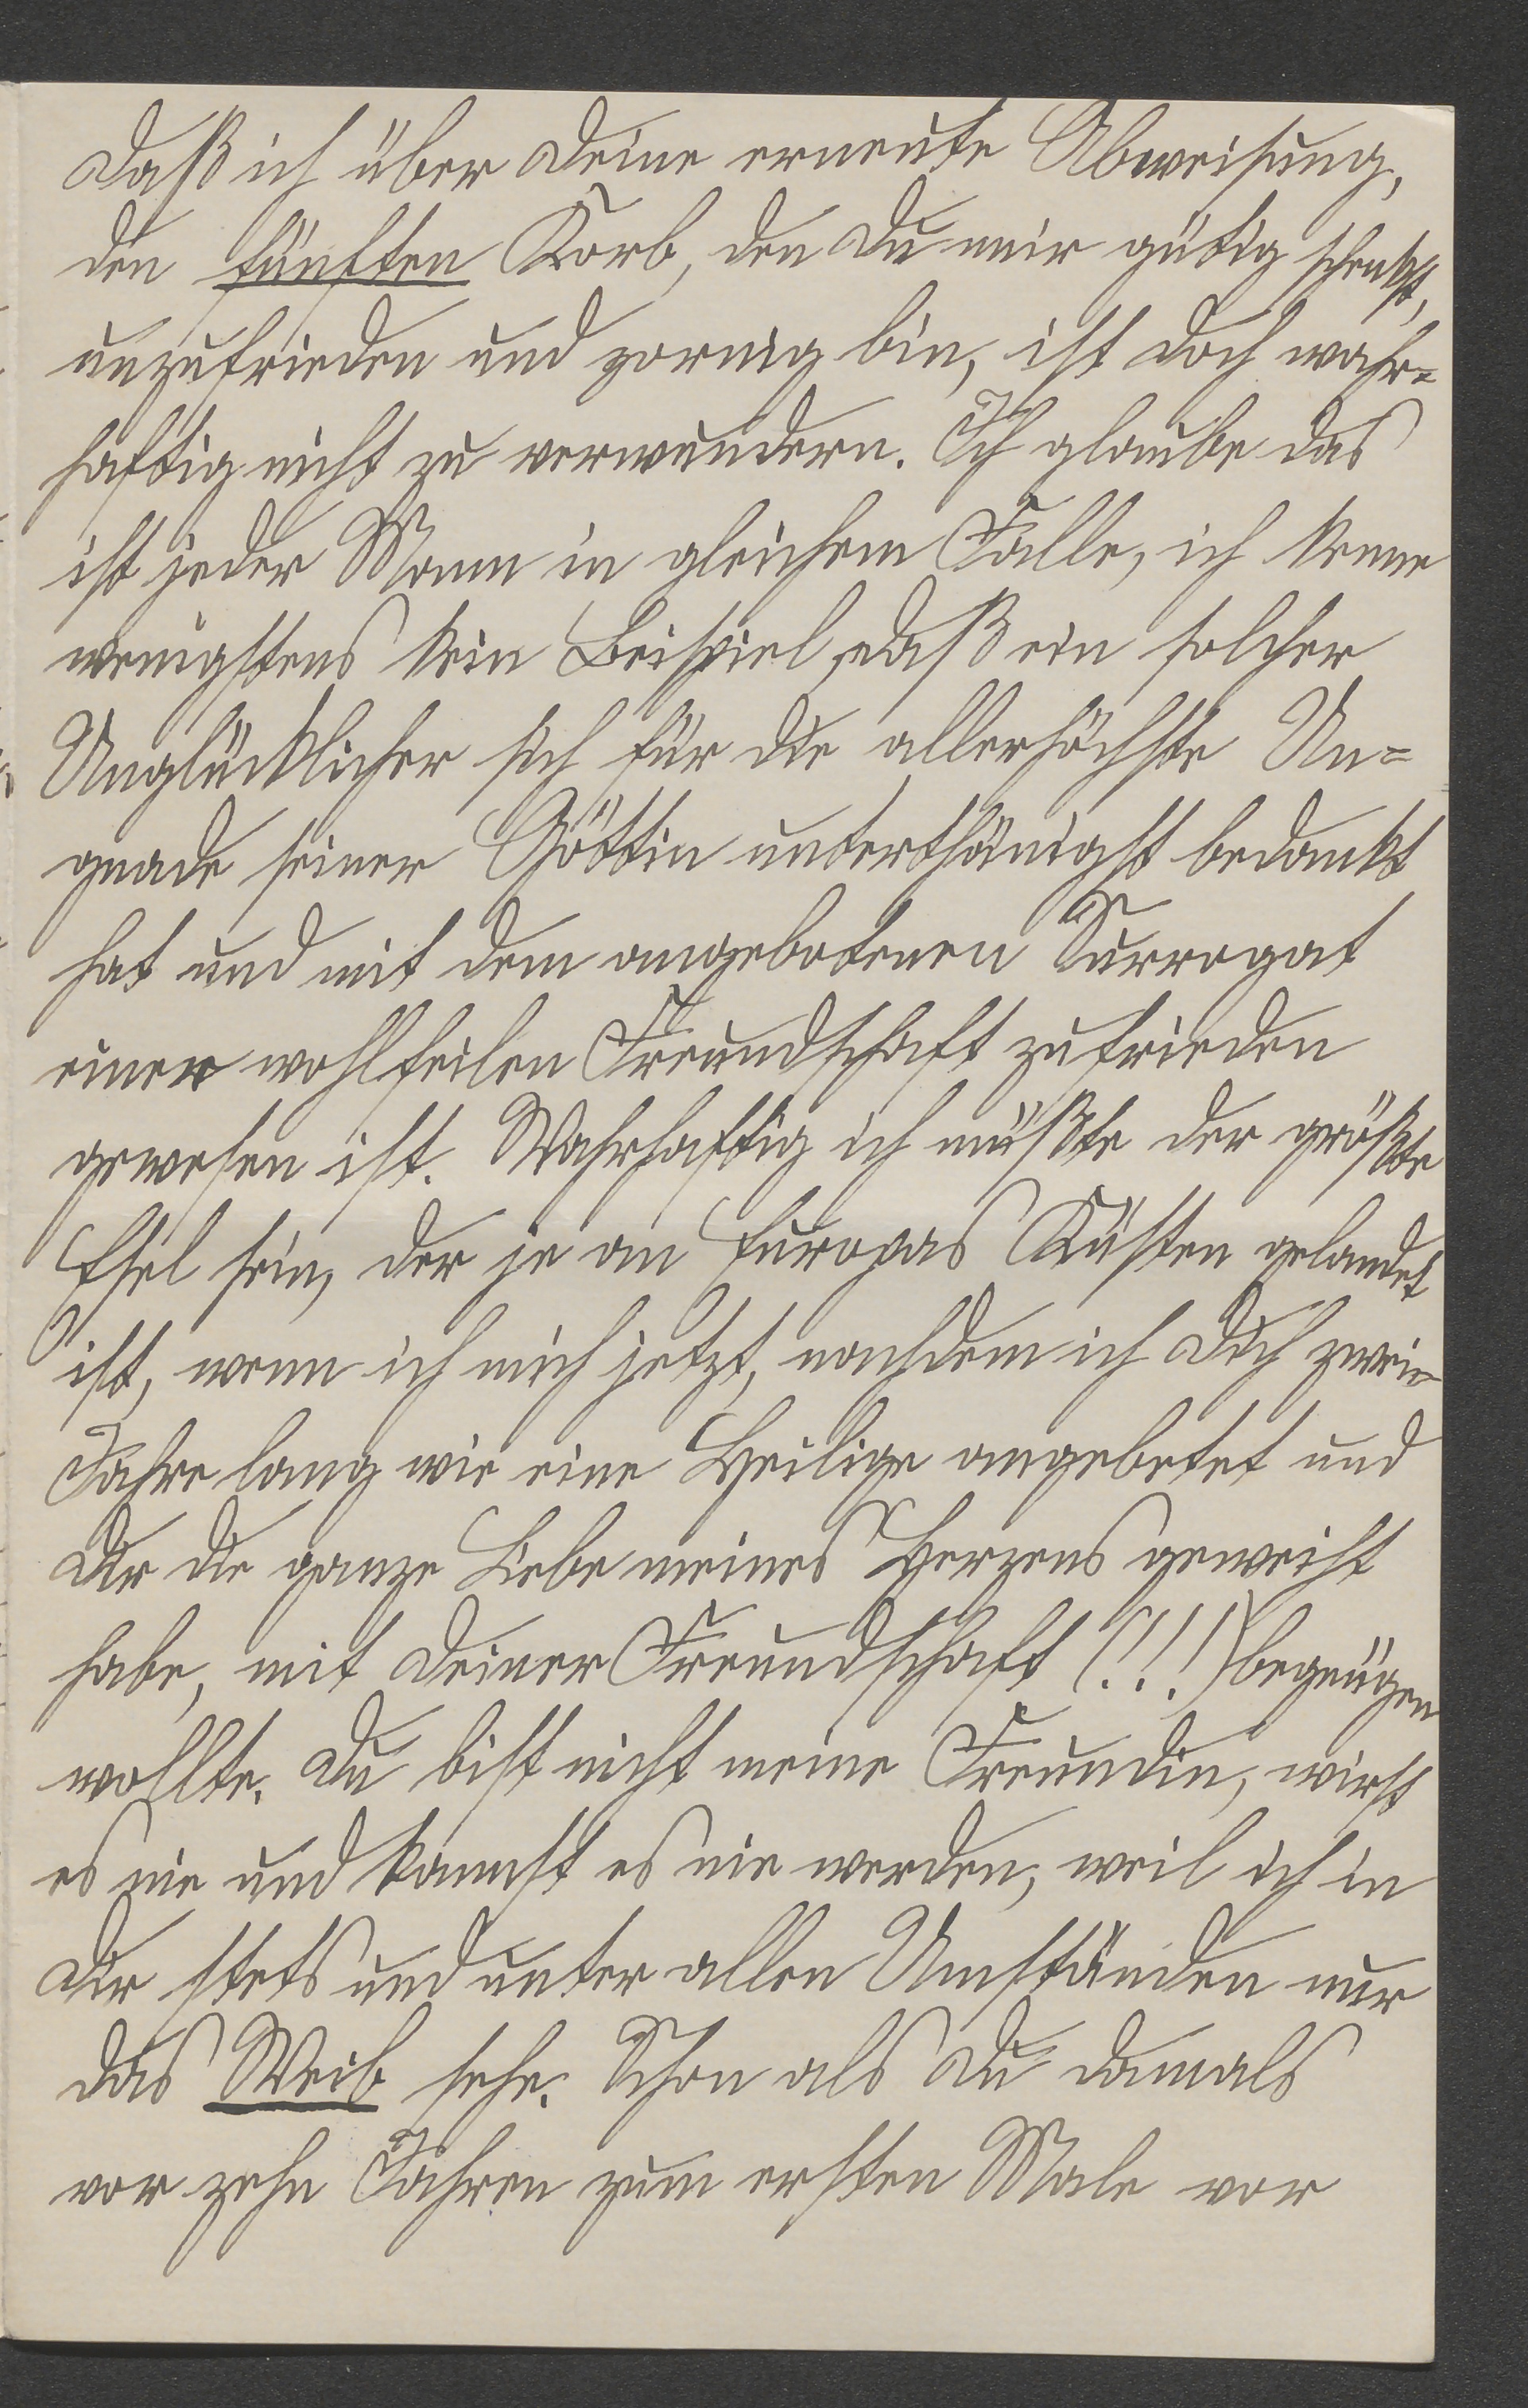 Daß ich über Deine erneute Abweisung,
den fünften Korb, den Du mir gütig schenkst,
unzufrieden und zornig bin, ist doch wahr=
haftig nicht zu verwundern. Ich glaube das
ist jeder Mann in gleichem Falle, ich kenne
wenigstens kein Beispiel, daß ein solcher
Unglücklicher sich für die allerhöchste Un=
gnade seiner Göttin unterthänigst bedankt
hat und mit dem angebotenen Surrogat
einer wohlfeilen Freundschaft zufrieden
gewesen ist. Wahrhaftig ich müßte der größte
Esel sein, der je an Europas Küsten gelandet
ist, wenn ich mich jetzt, nachdem ich Dich zwei
Jahre lang wie eine Heilige angebetet und
Dir die ganze Liebe meines Herzens geweiht
habe, mit Deiner Freundschaft (!!!) begnügen
wollte. Du bist nicht meine Freundin, wirst
es nie und kannst es nie werden, weil ich in
Dir stets und unter allen Umständen nur
das Weib sehe. Schon als Du damals
vor zehn Jahren zum ersten Male vor